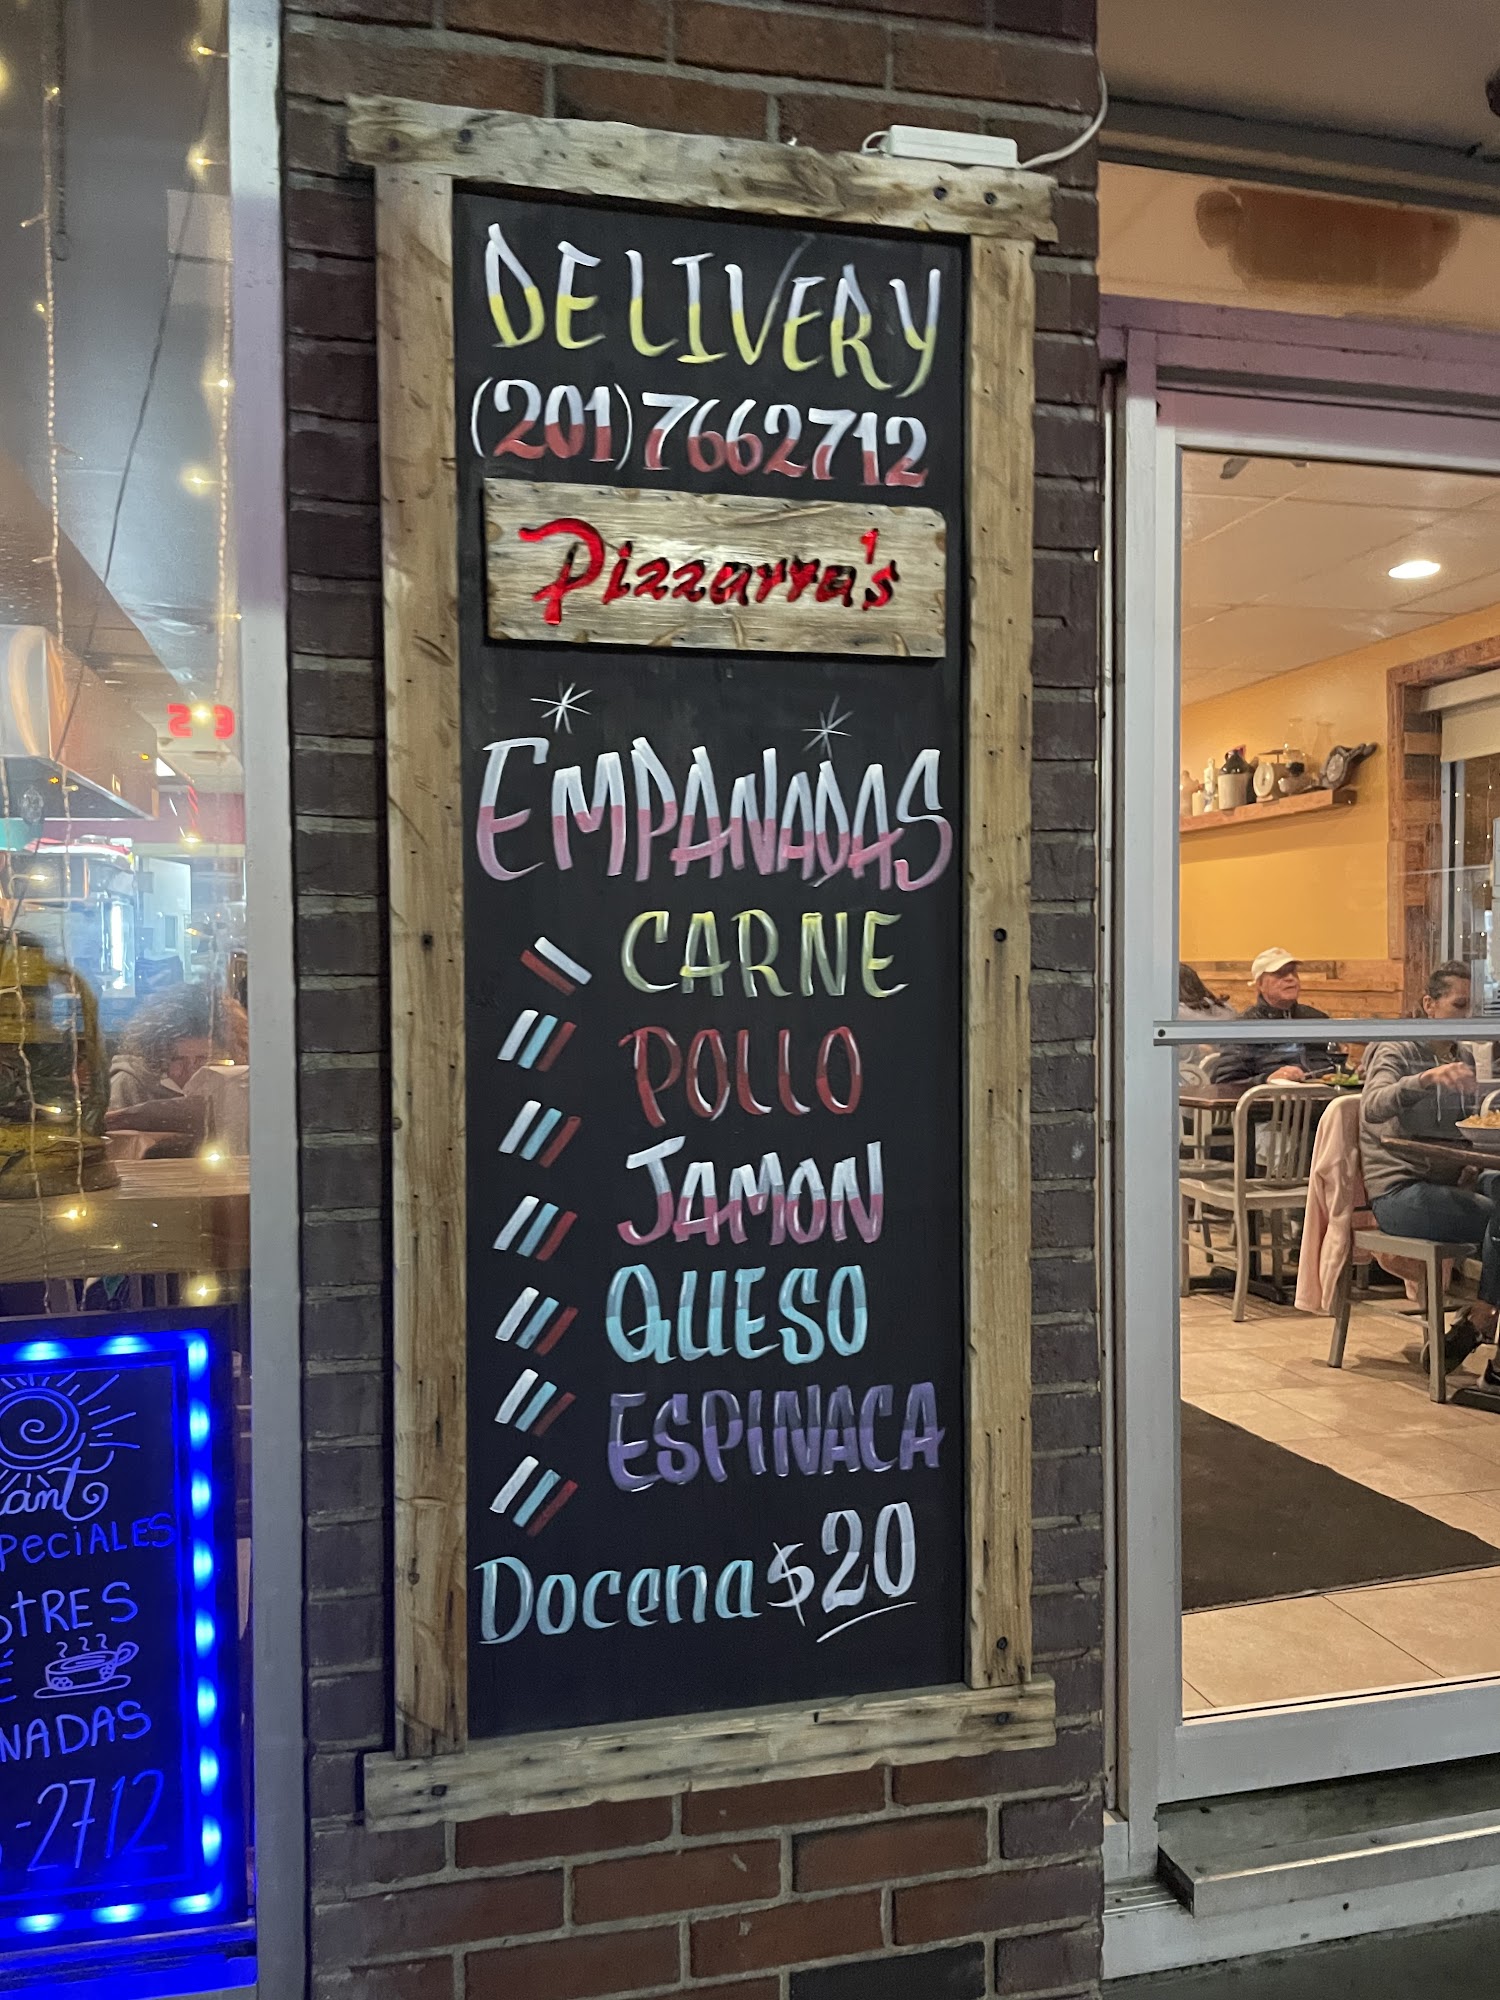 DELIVERY
(201)7662712
Pizzarra's
EMPANADAS
CARNE
POLLO
JAMON
QUESO
ESPINACA
Docena $20
NADAS
-2712